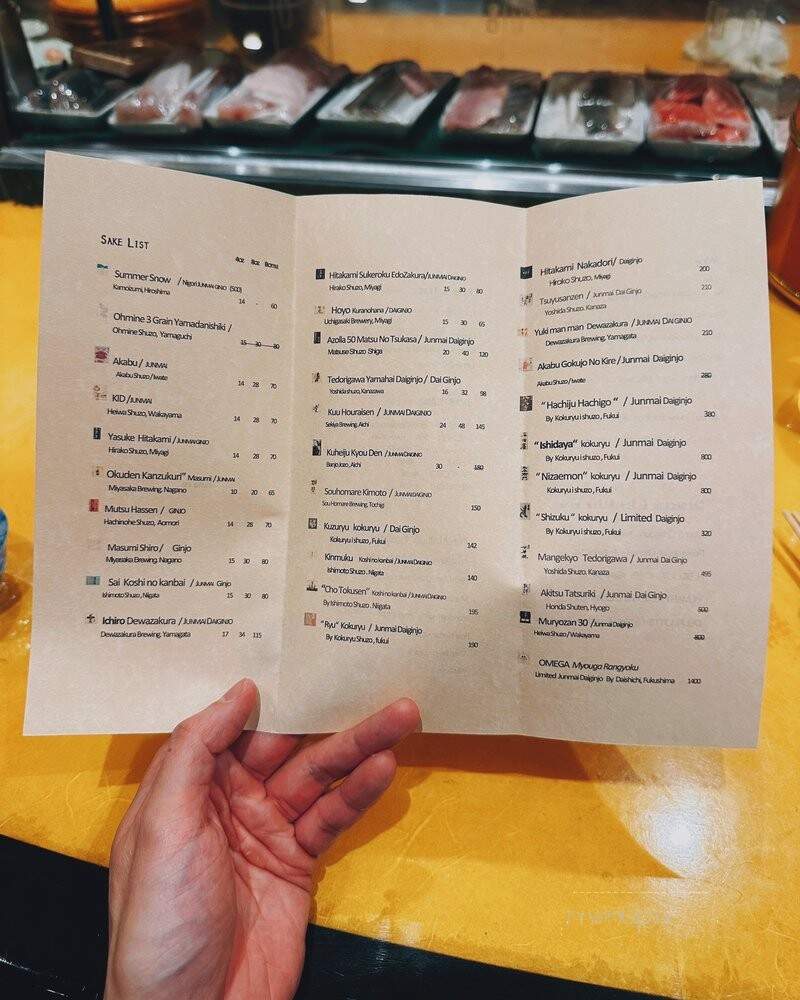 SAKE LIST
4oz 8oz Bottle
Summer Snow / Nigori JUNMAI GINJO (500)
Kamoizumi, Hiroshima
14 - 60
Ohmine 3 Grain Yamadanishiki /
Ohmine Shuzo, Yamaguchi
15 30 80
Akabu / JUNMAI
Akabu Shuzo / Iwate
14 28 70
KID / JUNMAI
Heiwa Shuzo, Wakayama
14 28 70
Yasuke Hitakami / JUNMAI GINJO
Hirako Shuzo, Miyagi
14 28 70
Okuden Kanzukuri" Masumi / JUNMAI
Miyasaka Brewing, Nagano
10 20 65
Mutsu Hassen / GINJO
Hachinohe Shuzo, Aomori
14 28 70
Masumi Shiro / Ginjo
Miyasaka Brewing, Nagano
15 30 80
Sai Koshi no kanbai / JUNMAI Ginjo
Ishimoto Shuzo, Niigata
15 30 80
Ichiro Dewazakura / JUNMAI DAIGINJO
Dewazakura Brewing, Yamagata
17 34 115
Hitakami Sukeroku EdoZakura/JUNMAI DAIGINJO
Hirako Shuzo, Miyagi 15 30 80
Hoyo Kuranohana / DAIGINJO
Uchigasaki Brewery, Miyagi 15 30 65
Azolla 50 Matsu No Tsukasa / Junmai Daiginjo
Matsuse Shuzo Shiga 20 40 120
Tedorigawa Yamahai Daiginjo / Dai Ginjo
Yoshida shuzo, Kanazawa 16 32 98
Kuu Houraisen / JUNMAI DAIGINJO
Sekiya Brewing, Aichi 24 48 145
Kuheiji Kyou Den / JUNMAI DAIGINJO
Banjo Jozo, Aichi 30 - 180
Souhomare Kimoto / JUNMAI DAIGINJO
Sou Homare Brewing, Tochigi
150
Kuzuryu kokuryu / Dai Ginjo
Kokuryu i shuzo, Fukui
142
Kinmuku Koshi no kanbai / JUNMAI DAIGINJO
Ishimoto Shuzo . Niigata
140
"Cho Tokusen" Koshi no kanbai / JUNMAI DAIGINJO
By Ishimoto Shuzo . Niigata
195
"Ryu" Kokuryu / Junmai Daiginjo
By Kokuryu Shuzo , fukui
190
Hitakami Nakadori/ Daiginjo
Hirako Shuzo, Miyagi 200
Tsuyusanzen / Junmai Dai Ginjo 210
Yoshida Shuzo. Kanaza
Yuki man man Dewazakura / JUNMAI DAIGINJO
Dewazakura Brewing, Yamagata 210
Akabu Gokujo No Kire / Junmai Daiginjo
Akabu Shuzo / Iwate 280
"Hachiju Hachigo" / Junmai Daiginjo
By Kokuryu i shuzo , Fukui 380
"Ishidaya" kokuryu / Junmai Daiginjo
By Kokuryu i shuzo , Fukui 800
"Nizaemon" kokuryu / Junmai Daiginjo
Kokuryu i shuzo , Fukui 800
"Shizuku" kokuryu / Limited Daiginjo
By Kokuryu i shuzo , Fukui 320
Mangekyo Tedorigawa / Junmai Dai Ginjo
Yoshida Shuzo. Kanaza 495
Akitsu Tatsuriki / Junmai Dai Ginjo
Honda Shuten, Hyogo 500
Muryozan 30 /Junmai Daiginjo
Heiwa Shuzo / Wakayama 800
OMEGA Myouga Rangyoku
Limited Junmai Daiginjo By Daishichi, Fukushima 1400